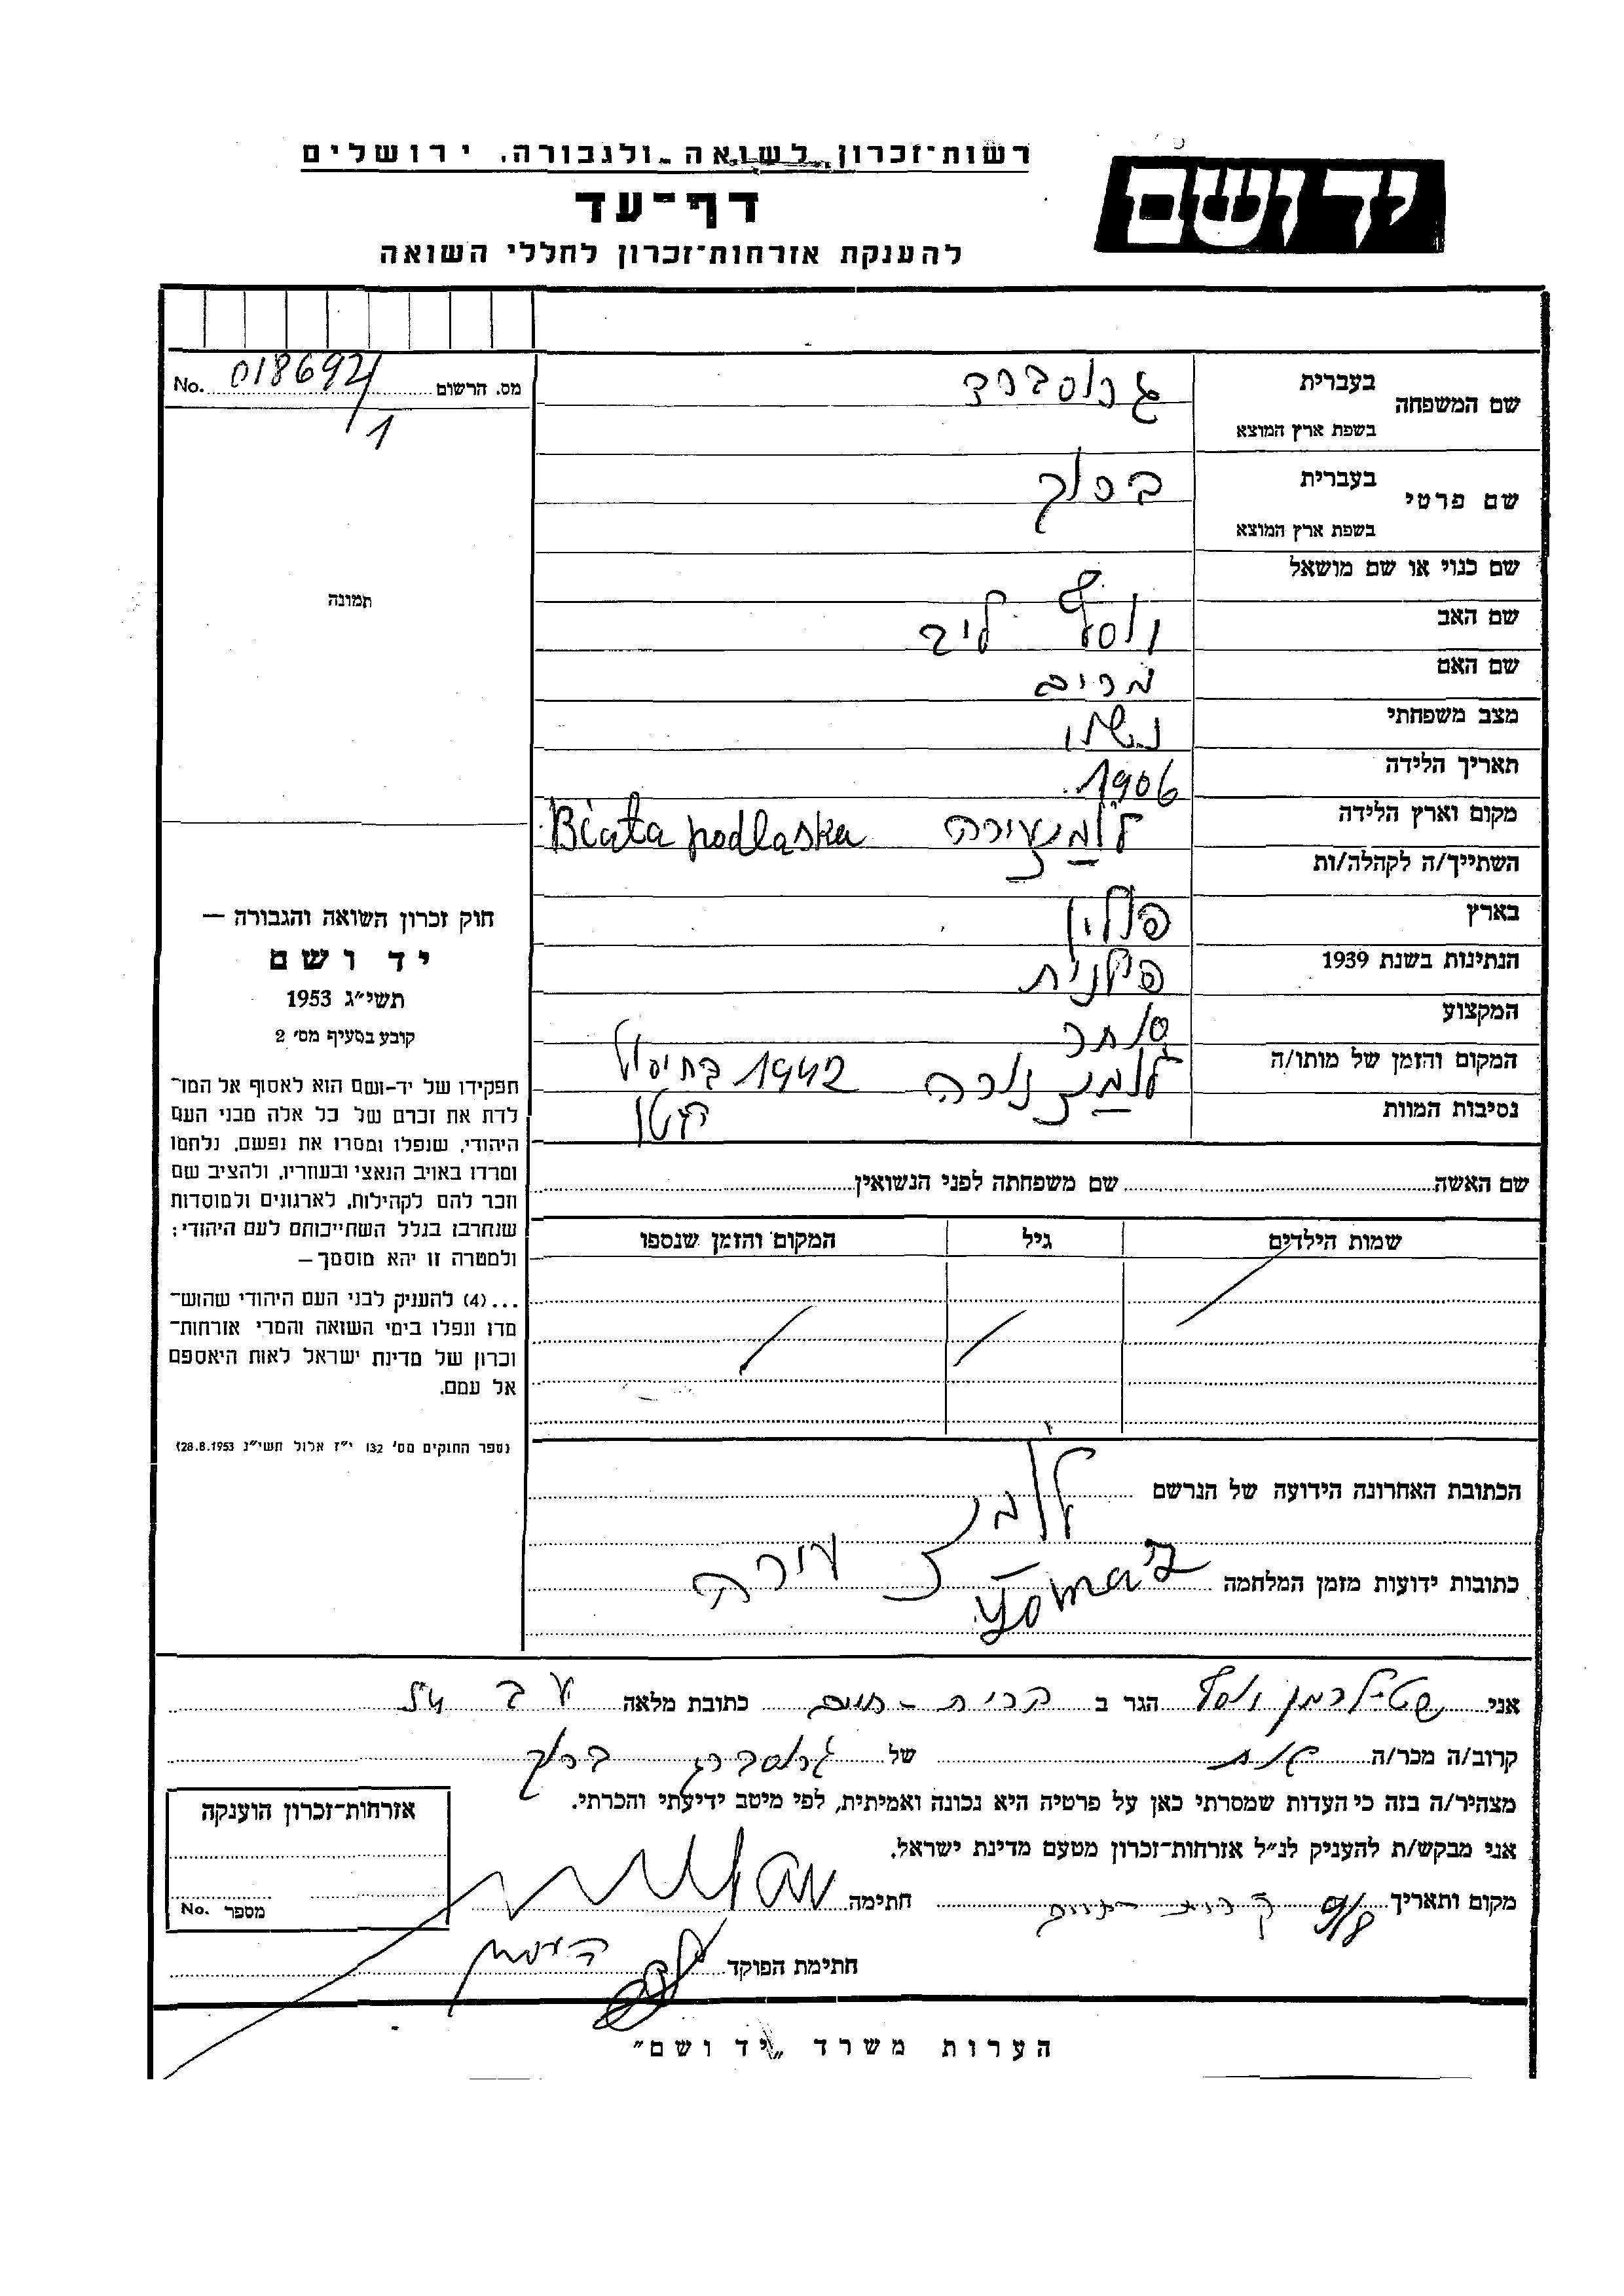 רשות־זכרון לשואה ולגבורה, ירושלים
יד ושם
דף־עד
להענקת אזרחות־זכרון לחללי השואה
מס. הרשום 018692/1 No.
שם המשפחה בעברית גרוסברד
בשפת ארץ המוצא
שם פרטי בעברית ברוך
בשפת ארץ המוצא
שם כנוי או שם מושאל
שם האב יוסף ליב
שם האם מרים
מצב משפחתי נשוי
תאריך הלידה 1906
מקום וארץ הלידה Biała podlaska
השתייך/ה לקהלה/ות
בארץ פולין
הנתינות בשנת 1939 פולנית
המקצוע סוחר
המקום והזמן של מותו/ה 1942 בחיסול
נסיבות המוות הגטו
תמונה
חוק זכרון השואה והגבורה —
יד ושם
תשי״ג 1953
קובע בסעיף מס׳ 2
תפקידו של יד-ושם הוא לאסוף אל המו־
לדת את זכרם של כל אלה מבני העם
היהודי, שנפלו ומסרו את נפשם, נלחמו
ומרדו באויב הנאצי ובעוזריו, ולהציב שם
וזכר להם לקהילות, לארגונים ולמוסדות
שנחרבו בגלל השתייכותם לעם היהודי;
ולמטרה זו יהא מוסמך —
...(4) להעניק לבני העם היהודי שהוש־
מדו ונפלו בימי השואה והמרי אזרחות־
זכרון של מדינת ישראל לאות היאספם
אל עמם.
(ספר החוקים מס׳ 132 י״ז אלול תשי״ג 28.8.1953)
שם האשה שם משפחתה לפני הנשואין
שמות הילדים גיל המקום והזמן שנספו
הכתובת האחרונה הידועה של הנרשם
כתובות ידועות מזמן המלחמה
אני שטילרמן יוסף הגר ב קרית-חיים כתובת מלאה
קרוב/ה מכר/ה של ברוך
מצהיר/ה בזה כי העדות שמסרתי כאן על פרטיה היא נכונה ואמיתית, לפי מיטב ידיעתי והכרתי.
אני מבקש/ת להעניק לנ״ל אזרחות־זכרון מטעם מדינת ישראל.
מקום ותאריך קרית חיים חתימה
חתימת הפוקד
אזרחות־זכרון הוענקה
מספר No.
הערות משרד „יד ושם״